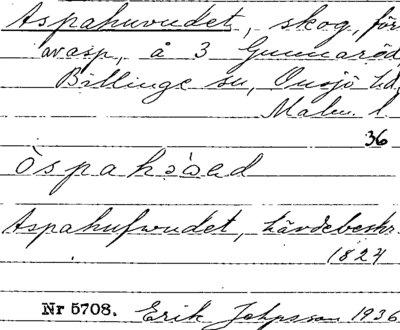 Aspahuvudet, skog, för
av asp, å 3 Gunnaröd
Billinge sn, Onsjö hd,
Malm. l.
36
òspahòəd
Aspahufvudet, hävdebeskr.
1824
Nr 5708. Erik Johnsson 1936